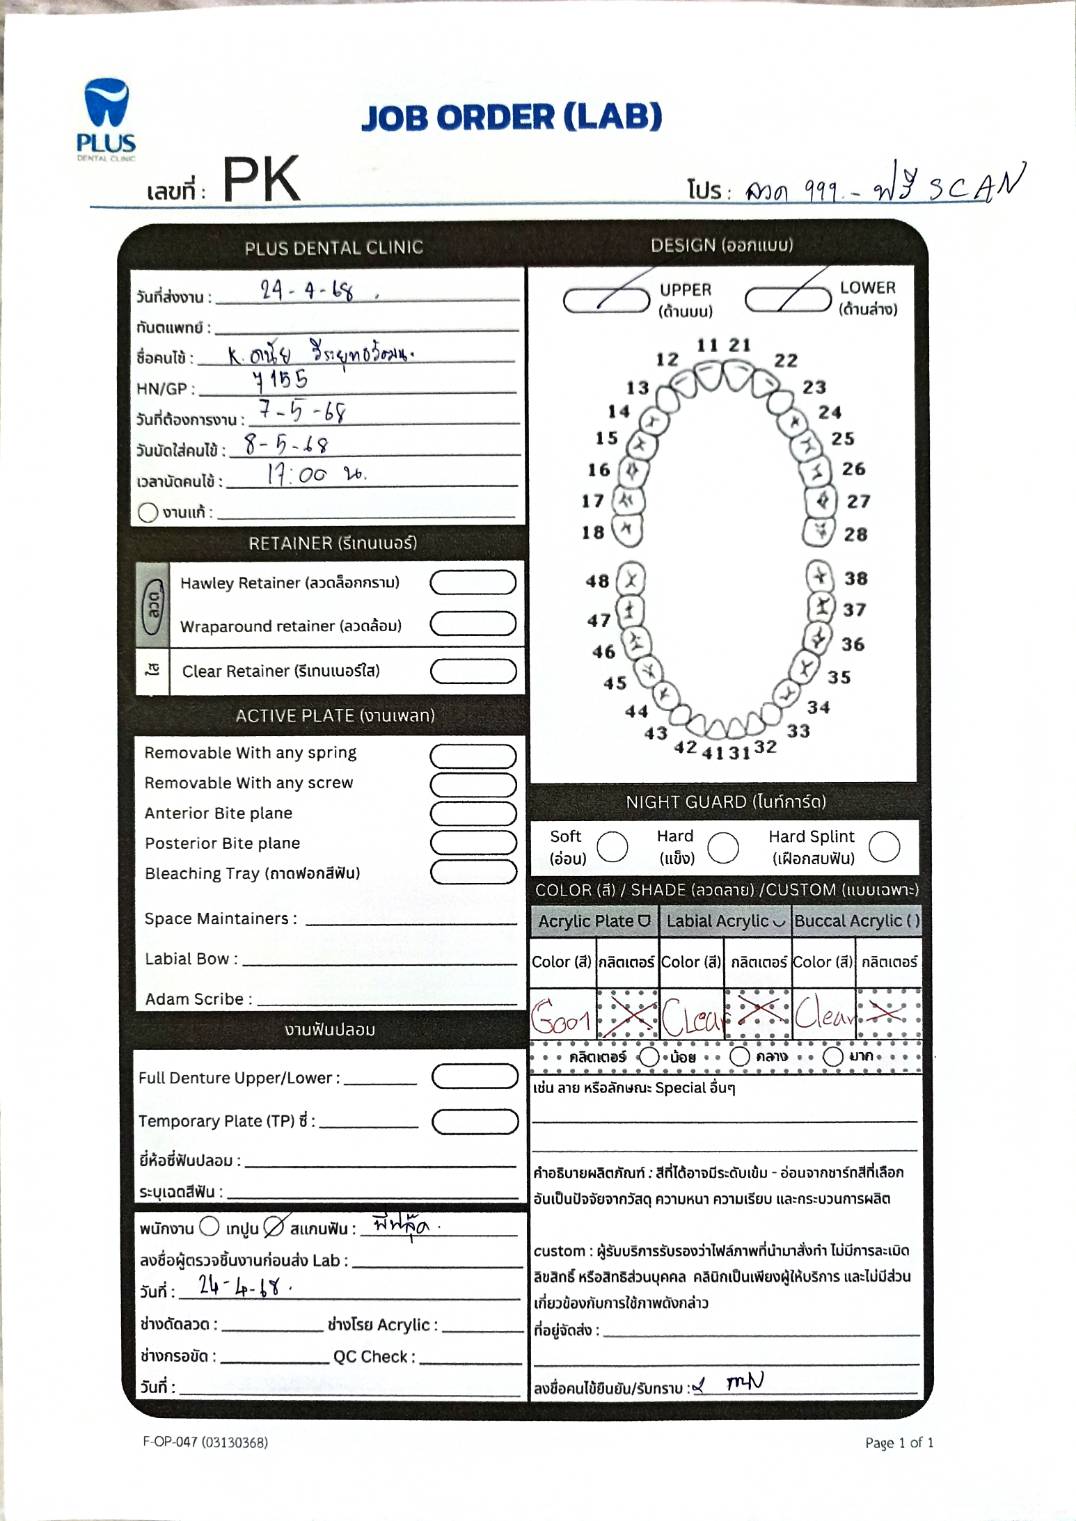 PLUS
DENTAL CLINIC
JOB ORDER (LAB)
เลขที่ : PK
โปร : ลวด 999.- ฟรี SCAN
PLUS DENTAL CLINIC
วันที่ส่งงาน : 24-4-68
ทันตแพทย์ :
ชื่อคนไข้ : K. ดนัย วีระยุทธวัฒนะ
HN/GP : 7155
วันที่ต้องการงาน : 7-5-68
วันนัดใส่คนไข้ : 8-5-68
เวลานัดคนไข้ : 17:00 น.
งานแก้ :
RETAINER (รีเทนเนอร์)
ลวด
Hawley Retainer (ลวดล็อกกราม)
Wraparound retainer (ลวดล้อม)
ใส
Clear Retainer (รีเทนเนอร์ใส)
ACTIVE PLATE (งานเพลท)
Removable With any spring
Removable With any screw
Anterior Bite plane
Posterior Bite plane
Bleaching Tray (ถาดฟอกสีฟัน)
Space Maintainers :
Labial Bow :
Adam Scribe :
งานฟันปลอม
Full Denture Upper/Lower :
Temporary Plate (TP) ซี่ :
ยี่ห้อซี่ฟันปลอม :
ระบุเฉดสีฟัน :
พนักงาน เทปูน สแกนฟัน :
ลงชื่อผู้ตรวจชิ้นงานก่อนส่ง Lab :
วันที่ : 24-4-68.
ช่างดัดลวด : ช่างโรย Acrylic :
ช่างกรอขัด : QC Check :
วันที่ :
DESIGN (ออกแบบ)
UPPER
(ด้านบน)
LOWER
(ด้านล่าง)
11 21
12 22
13 23
14 24
15 25
16 26
17 27
18 28
48 38
47 37
46 36
45 35
44 34
43 33
42 41 31 32
NIGHT GUARD (ไนท์การ์ด)
Soft Hard Hard Splint
(อ่อน) (แข็ง) (เฝือกสบฟัน)
COLOR (สี) / SHADE (ลวดลาย) /CUSTOM (แบบเฉพาะ)
Acrylic Plate Labial Acrylic Buccal Acrylic ( )
Color (สี) กลิตเตอร์ Color (สี) กลิตเตอร์ Color (สี) กลิตเตอร์
G001 Clear Clear
กลิตเตอร์ น้อย กลาง มาก
เช่น ลาย หรือลักษณะ Special อื่นๆ
คำอธิบายผลิตภัณฑ์ : สีที่ได้อาจมีระดับเข้ม - อ่อนจากชาร์ทสีที่เลือก
อันเป็นปัจจัยจากวัสดุ ความหนา ความเรียบ และกระบวนการผลิต
custom : ผู้รับบริการรับรองว่าไฟล์ภาพที่นำมาสั่งทำ ไม่มีการละเมิด
ลิขสิทธิ์ หรือสิทธิส่วนบุคคล คลินิกเป็นเพียงผู้ให้บริการ และไม่มีส่วน
เกี่ยวข้องกับการใช้ภาพดังกล่าว
ที่อยู่จัดส่ง :
ลงชื่อคนไข้ยืนยัน/รับทราบ :
F-OP-047 (03130368)
Page 1 of 1